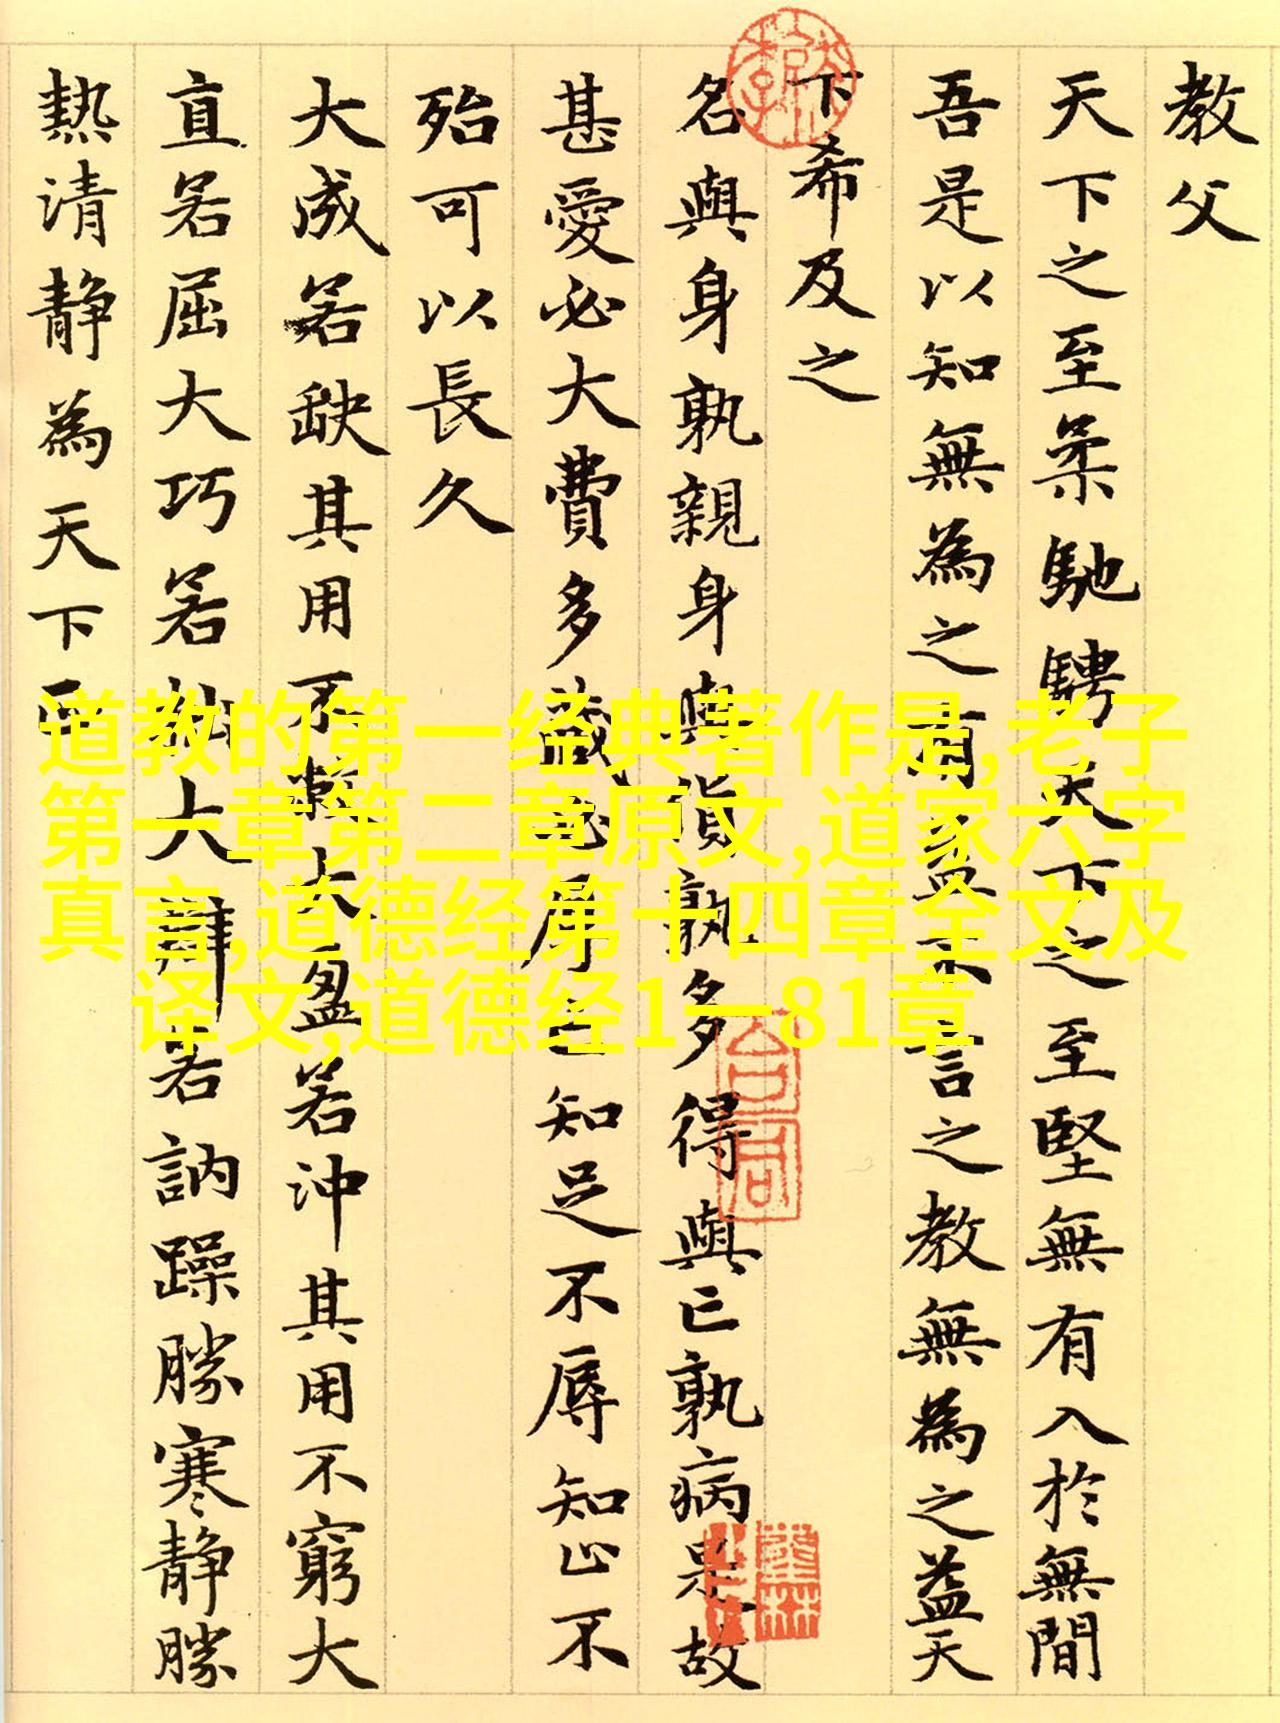 教父
天下之至柔馳騁天下之至堅無有入於無間
吾是以知無為之有益不言之教無為之益天
下希及之
名與身孰親身與貨孰多得與亡孰病是故
甚愛必大費多藏必厚亡知足不辱知止不
殆可以長久
大成若缺其用不弊大盈若沖其用不窮大
直若屈大巧若拙大辯若訥躁勝寒靜勝
熱清靜為天下正
道教的第一经典著作是,老子
第一章第二章原文,道家六字
真言,道德经第十四章全文及
译文,道德经1一81章